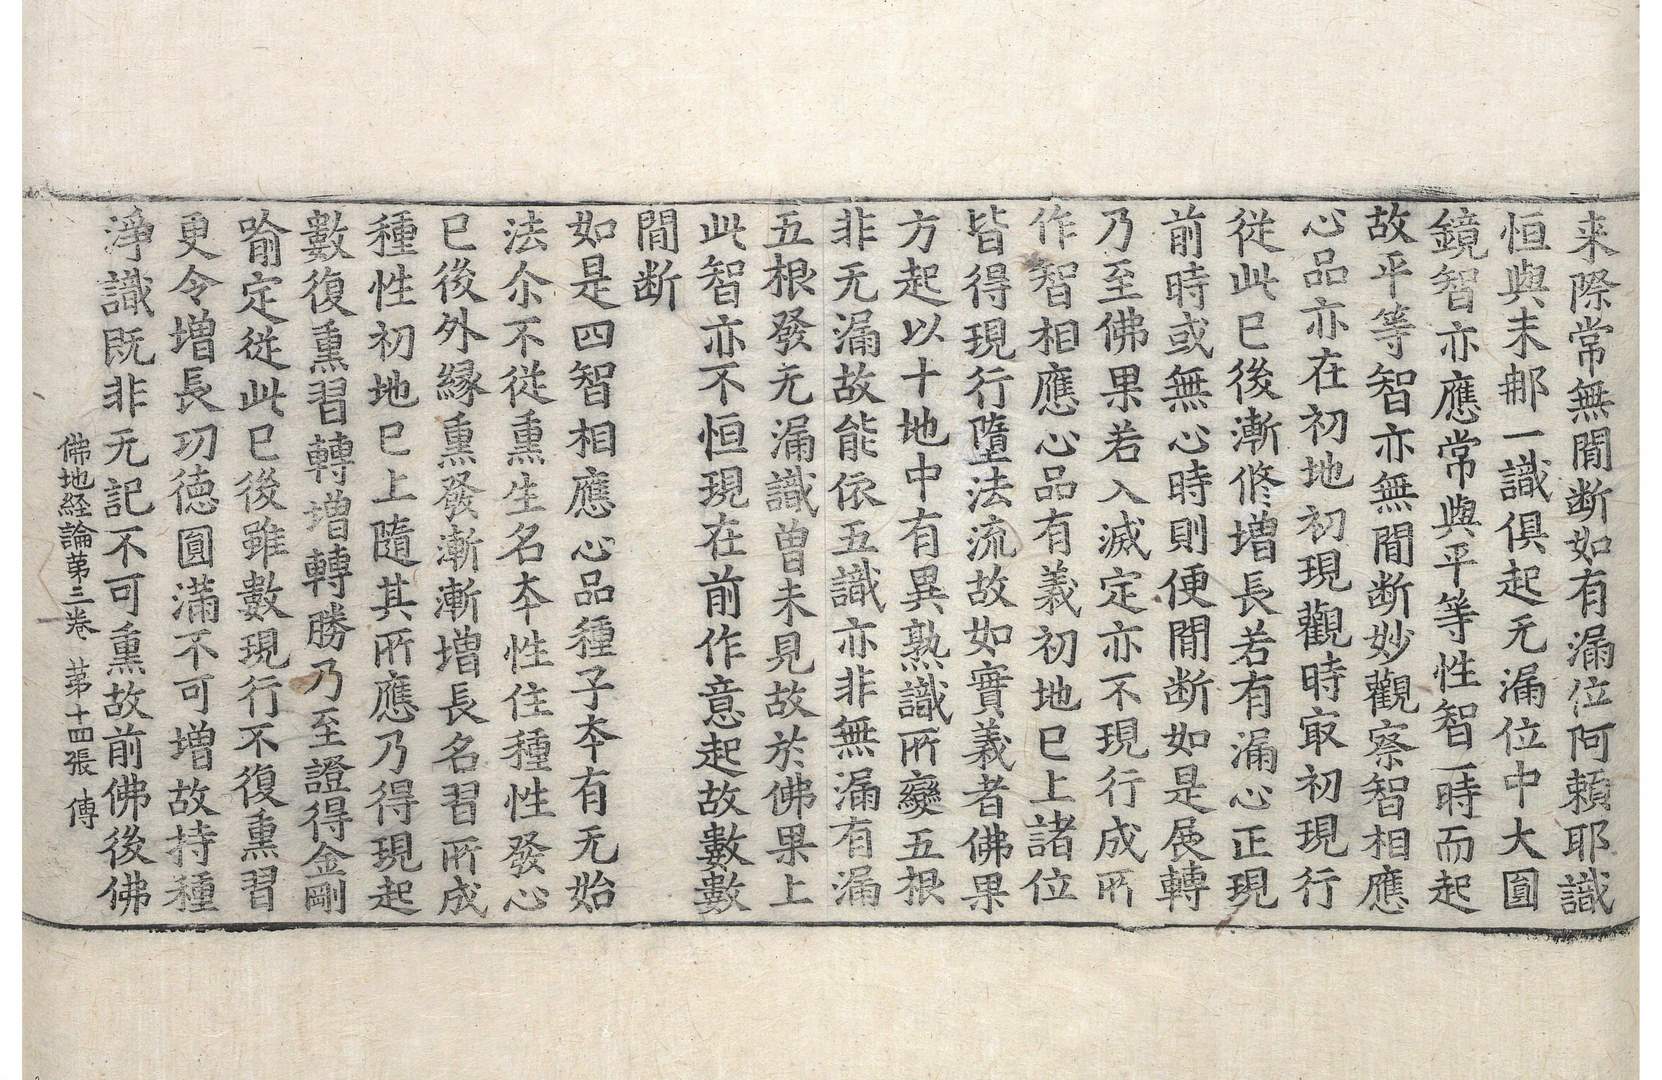 来際常無間断如有漏位阿頼耶識
恒與末郍一識俱起无漏位中大圓
鏡智亦應常與平等性智一時而起
故平等智亦無間断妙觀察智相應
心品亦在初地初現觀時㝡初現行
從此已後漸修增長若有漏心正現
前時或無心時則便間断如是展轉
乃至佛果若入滅定亦不現行成所
作智相應心品有義初地已上諸位
皆得現行墮法流故如實義者佛果
方起以十地中有異熟識所變五根
非无漏故能依五識亦非無漏有漏
五根發无漏識曾未見故於佛果上
此智亦不恒現在前作意起故數數
間断
如是四智相應心品種子夲有无始
法尒不從熏生名夲性住種性發心
已後外緣熏發漸漸增長名習所成
種性初地已上隨其所應乃得現起
數復熏習轉增轉勝乃至證得金剛
喻定從此已後雖數現行不復熏習
更令增長功德圓滿不可增故持種
淨識既非无記不可熏故前佛後佛
佛地經論苐三卷 苐十四張 傳